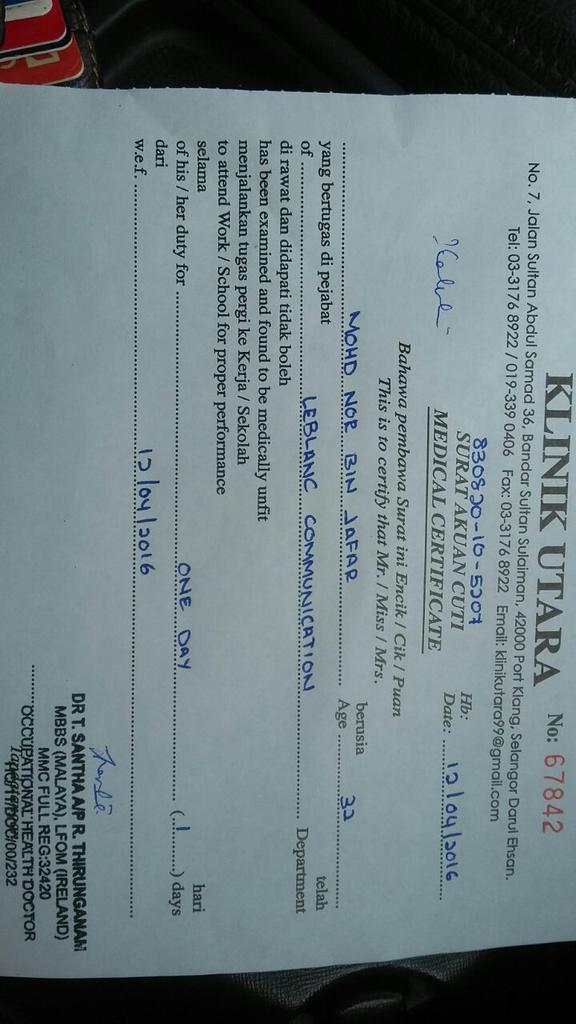 KLINIK UTARA No: 67842
No. 7, Jalan Sultan Abdul Samad 36, Bandar Sultan Sulaiman, 42000 Port Klang, Selangor Darul Ehsan.
Tel: 03-3176 8922 / 019-339 0406 Fax: 03-3176 8922 Email: klinikutara99@gmail.com
830820-10-5207
SURAT AKUAN CUTI
MEDICAL CERTIFICATE
Hb:
Date: 12/04/2016
Bahawa pembawa Surat ini Encik / Cik / Puan
This is to certify that Mr. / Miss / Mrs.
MOHD NOR BIN JAFAR berusia
Age 32
yang bertugas di pejabat telah
of LEBLANC COMMUNICATION Department
di rawat dan didapati tidak boleh
has been examined and found to be medically unfit
menjalankan tugas pergi ke Kerja / Sekolah
to attend Work / School for proper performance
selama hari
of his / her duty for ONE DAY (1) days
dari
w.e.f. 12/04/2016
DR T. SANTHA A/P R. THIRUNGANAM
MBBS (MALAYA), LFOM (IRELAND)
MMC FULL REG:32420
OCCUPATIONAL HEALTH DOCTOR